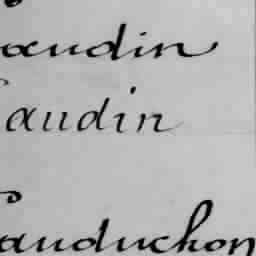 audin
audin
auduchon